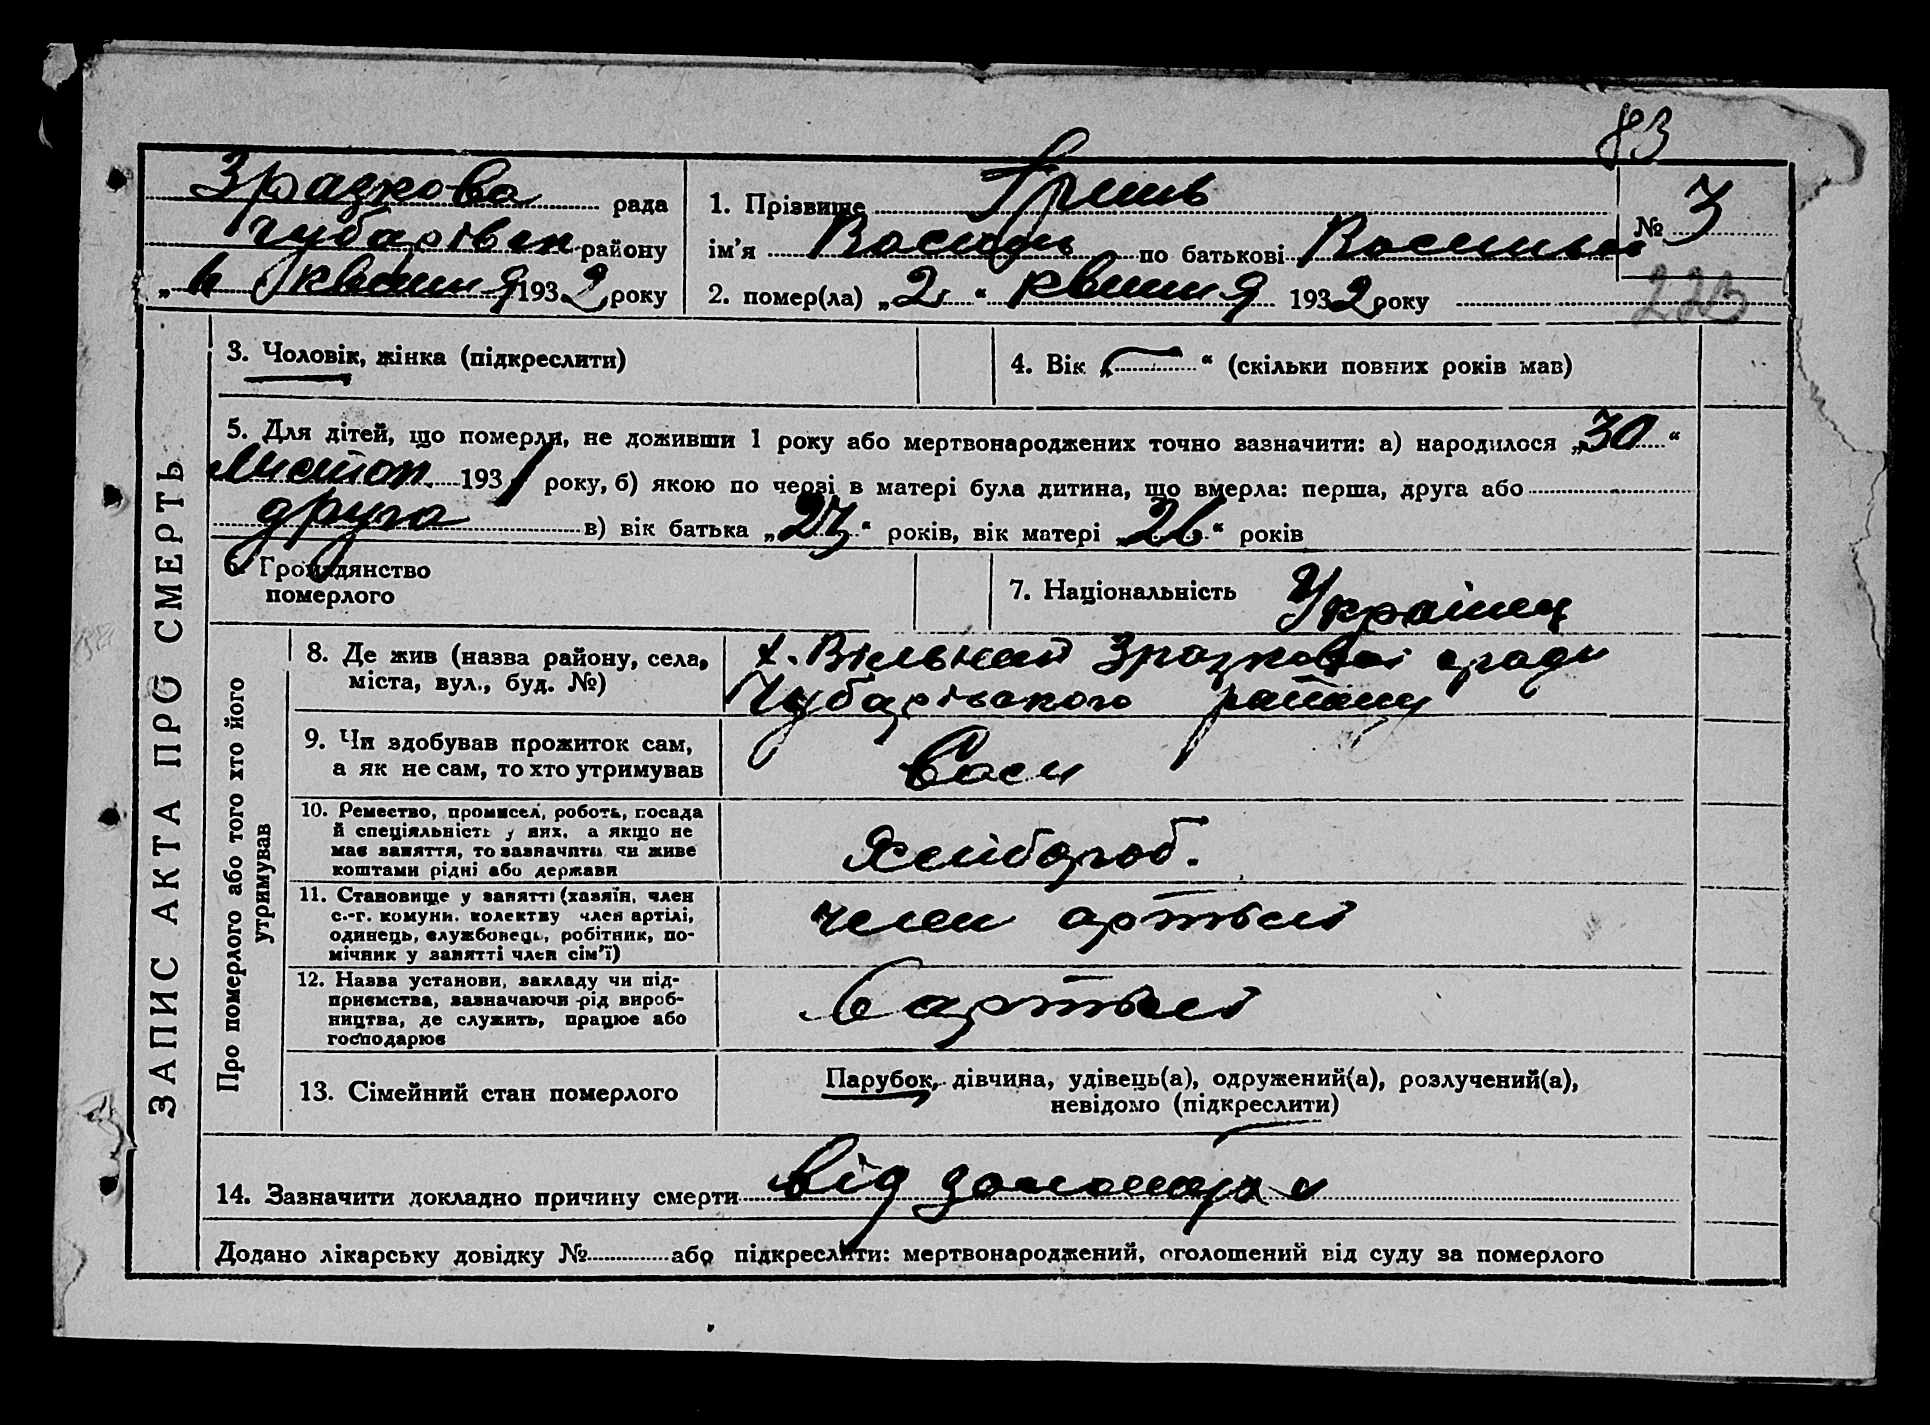 83
Зразкова рада
Чубарівськ району
„4" квітня 1932 року
1. Прізвище Гришь
№ 3
ім'я Василь по батькові Васильов
2. помер(ла) „2" квітня 1932 року
223
ЗАПИС АКТА ПРО СМЕРТЬ
3. Чоловік, жінка (підкреслити)
4. Вік „—" (скільки повних років мав)
5. Для дітей, що померли, не доживши 1 року або мертвонароджених точно зазначити: а) народилося „30"
листоп. 1931 року, б) якою по черзі в матері була дитина, що вмерла: перша, друга або
друга в) вік батька „27" років, вік матері „26" років
6. Громадянство
померлого
7. Національність Українец
Про померлого або того хто його
утримував
8. Де жив (назва району, села,
міста, вул., буд. №)
х. Вільний Зразковоі сради
Чубарівського району
9. Чи здобував прожиток сам,
а як не сам, то хто утримував
10. Ремество, промисел, робота, посада
й спеціяльність у них, а якщо не
має заняття, то зазначити чи живе
коштами рідні або держави
Хлібороб.
11. Становище у занятті (хазяїн, член
с.-г. комуни, колективу член артілі,
одинець, службовець, робітник, по-
мічник у занятті член сім'ї)
член артелі
12. Назва установи, закладу чи під-
приємства, зазначаючи рід вироб-
ництва, де служить, працює або
господарює
В артелі
13. Сімейний стан померлого
Парубок, дівчина, удівець(а), одружений(а), розлучений(а),
невідомо (підкреслити)
14. Зазначити докладно причину смерти від
Додано лікарську довідку № або підкреслити: мертвонароджений, оголошений від суду за померлого